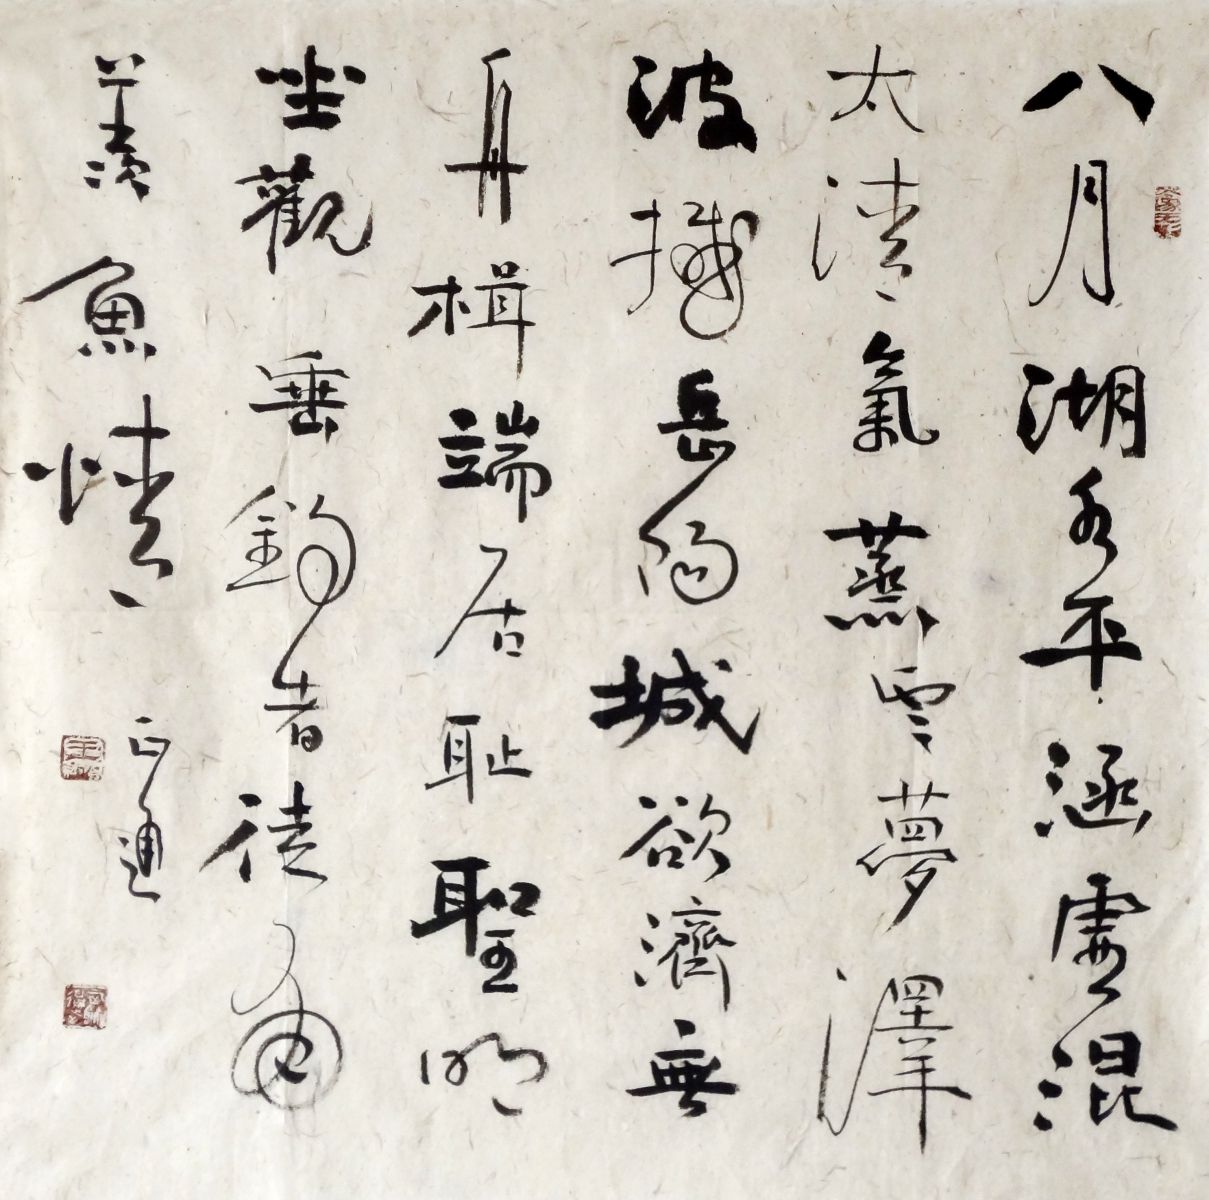 八月湖水平涵虚混
太清氣蒸雲夢澤
波撼岳陽城欲濟無
舟楫端居耻聖明
坐觀垂釣者徒有
羨魚情
正通